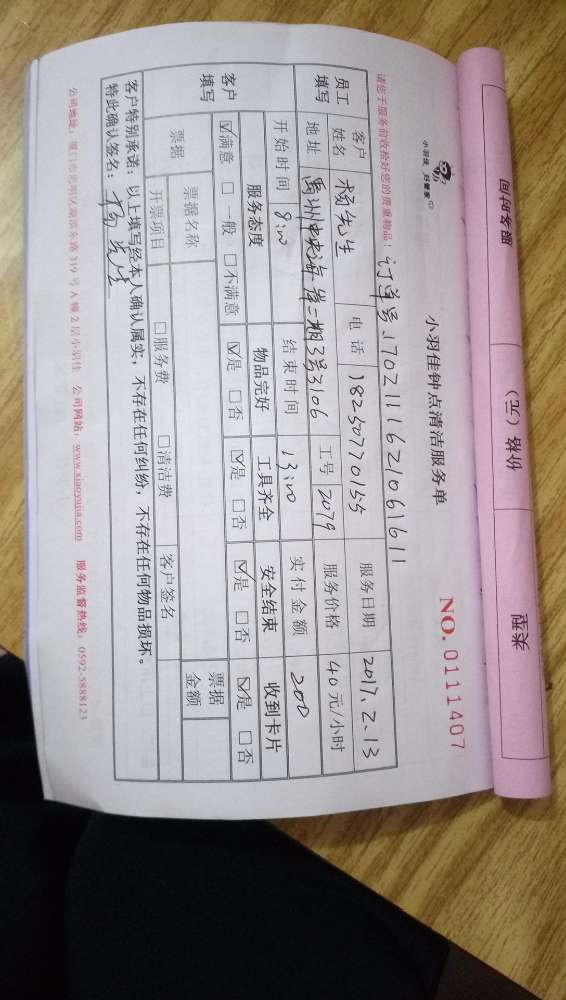 小羽佳钟点清洁服务单
小羽佳.好管家
NO. 0111407
请您于服务前收捡好您的贵重物品! 订单号.170211162106 1611
员工填写 客户姓名 杨先生 电话 18250770155 服务日期 2017.2.13
地址 禹州中央海岸二期3号3106 工号 2079 服务价格 40元/小时
开始时间 8:00 结束时间 13:00 实付金额 200
客户填写 服务态度 物品完好 工具齐全 安全结束 收到卡片
☑满意 □一般 □不满意 ☑是 □否 ☑是 □否 ☑是 □否 ☑是 □否
票据 票据名称 票据金额
开票项目 □服务费 □清洁费 客户签名
客户特别承诺：以上填写经本人确认属实，不存在任何纠纷，不存在任何物品损坏。
特此确认签名：杨先生
公司地址：厦门市思明区湖滨东路319号A幢2层小羽佳 公司网站：www.xiaoyujia.com 服务监督热线：0592-5888123